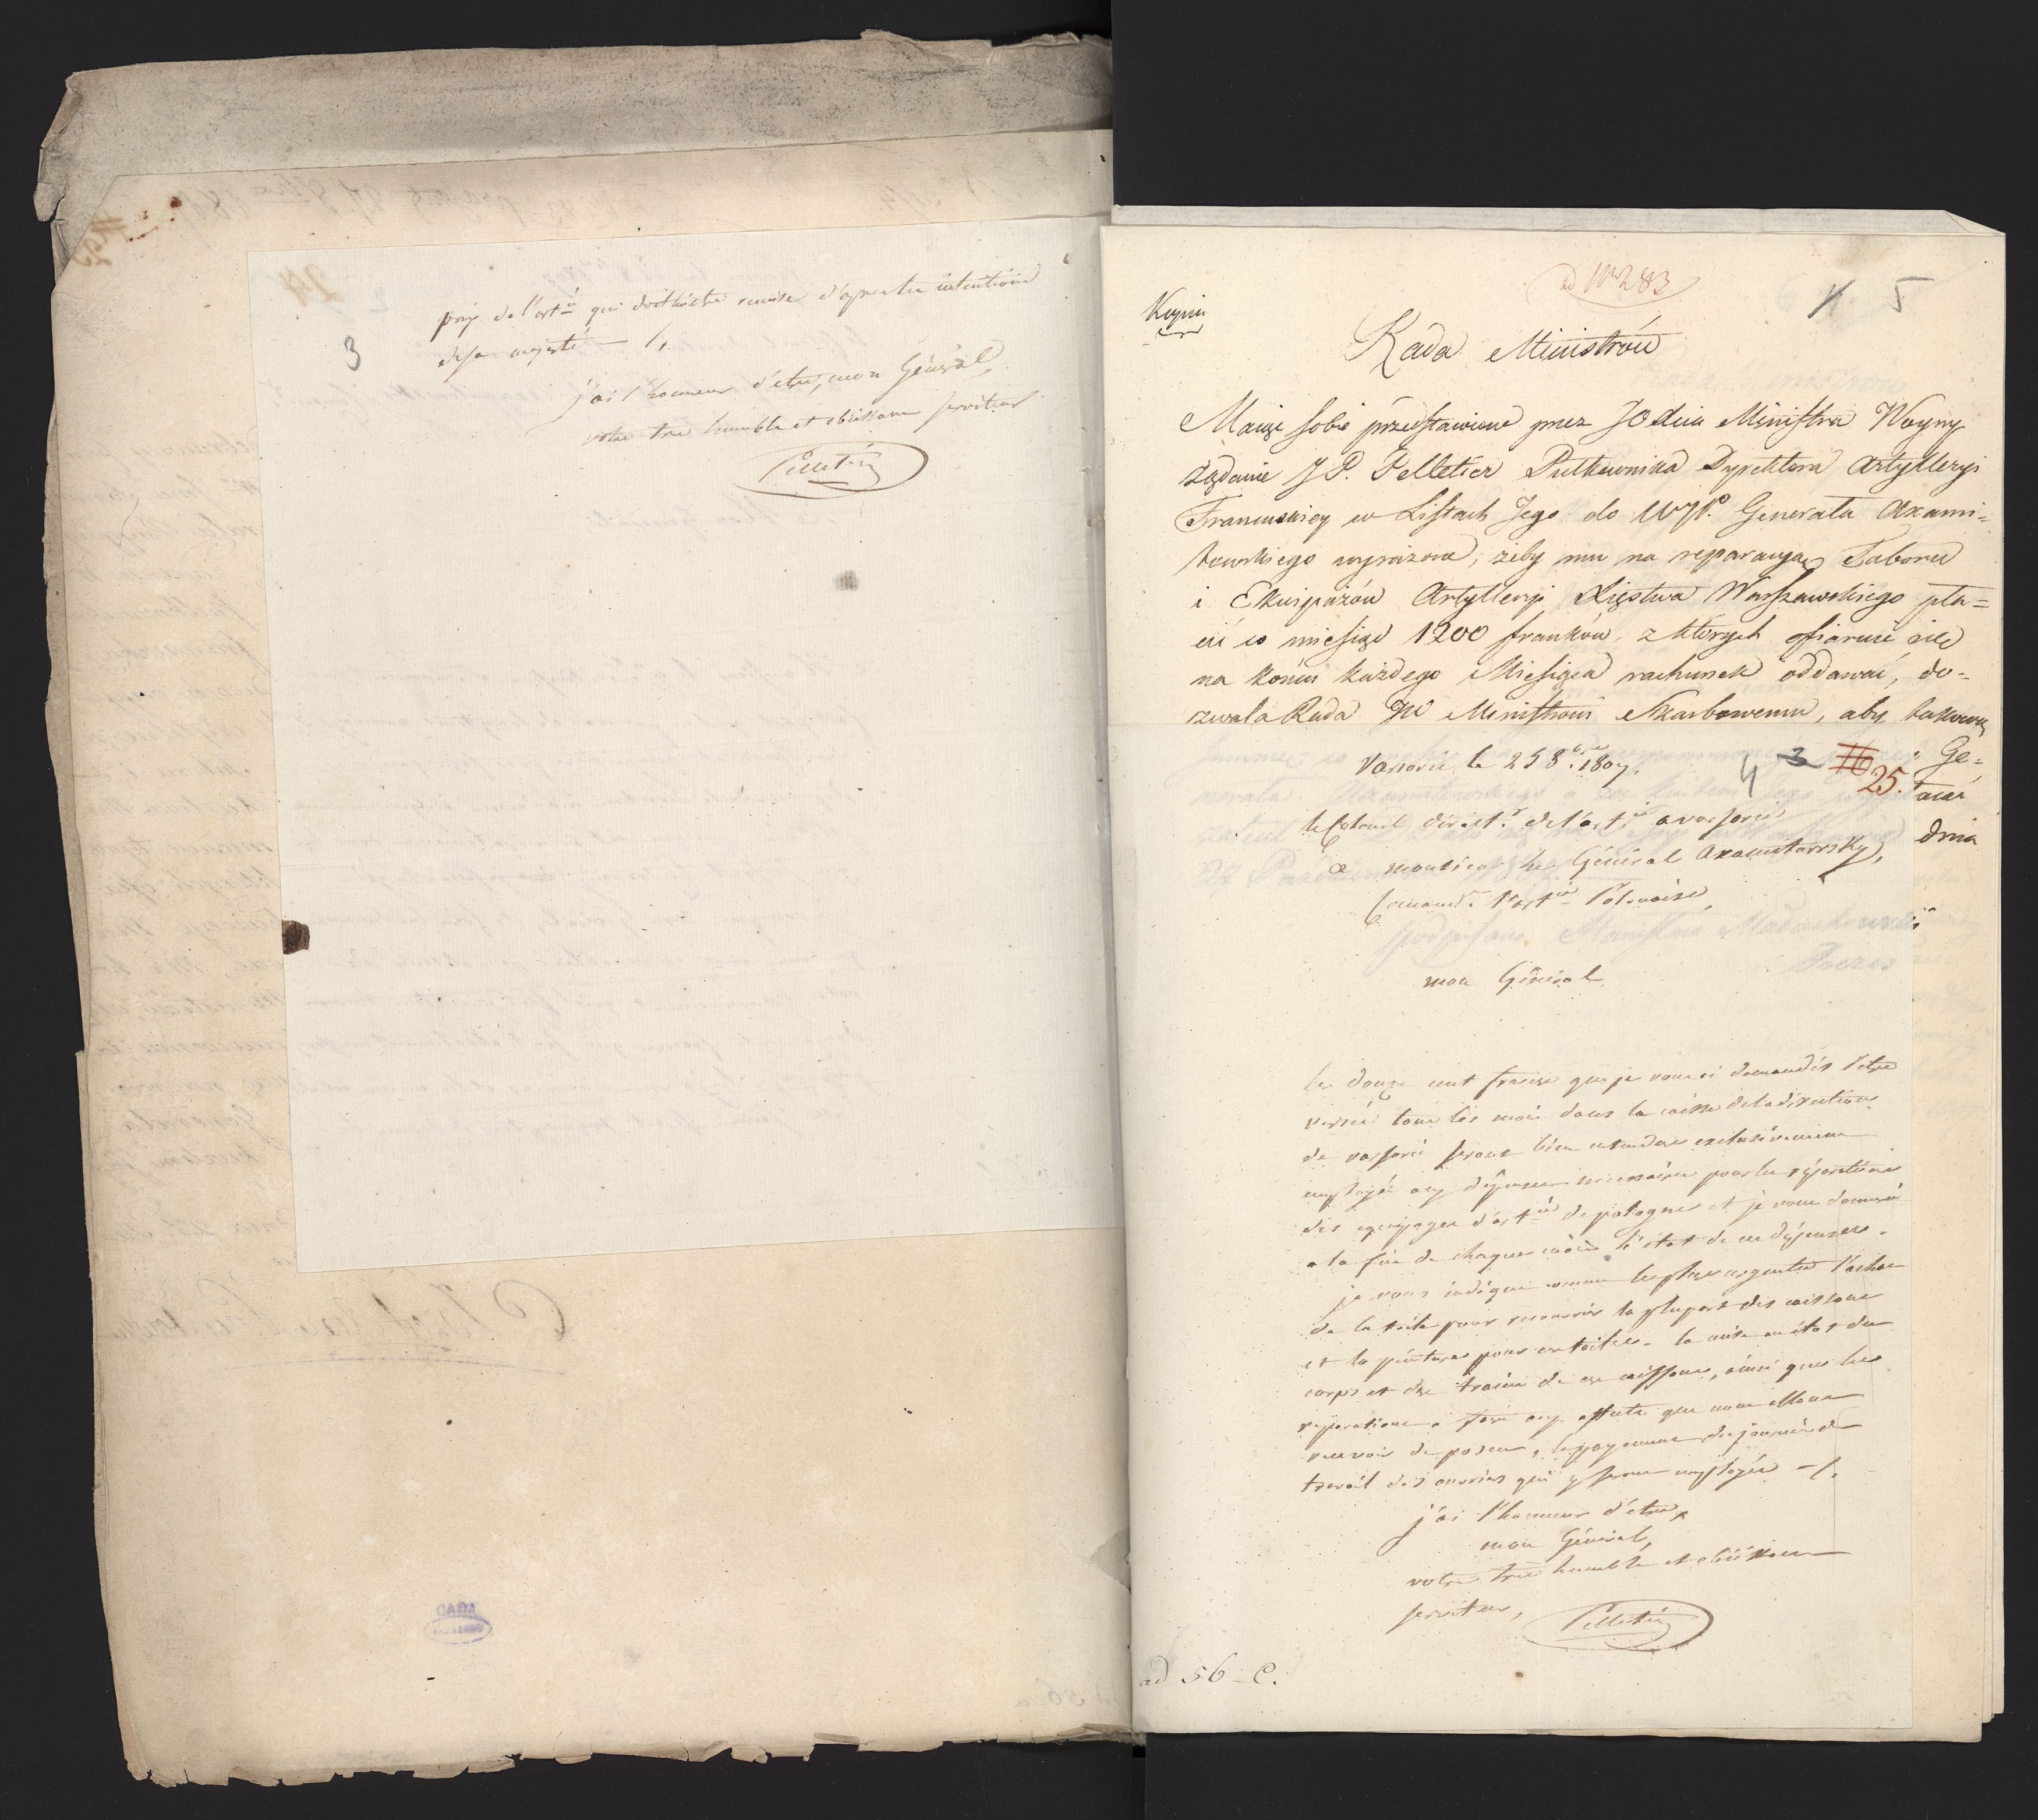 3
prix de l'art.ie qui doit être remise d'après les intentions
de sa majesté — /.
j'ai l'honneur d'etre, mon Général,
votre tres humble et obeissant serviteur
Pelletier
ad Nro 283
5
Kopia
Rada Ministrów
Maiąc sobie przedstawione przez JO Xcia Ministra Woyny
żądanie J P. Pelletier Pułkownika Dyrektora Artylleryi
Francuskiey w Listach Jego do WJP. Generała Axami=
towskiego wyrażone, żeby mu na reparacyą Taboru
i Ekwipażów Artylleryi Xięstwa Warszawskiego pła=
cić co miesiąc 1200 franków, z których ofiaruie się
na końcu każdego Miesiąca rachunek oddawać, do=
zwala Rada JW Ministrowi Skarbowemu, aby takową
Ge=
dnia
Varsovie le 25 8bre 1807.
4 3 25.
le Colonel direct.r de l'art.ie a varsovie
a monsieur le Général Axamitowsky,
Command.t l'art.ie Polonaise,
mon Général
les douze cent francs que je vous ai demandés d'etre
versés tous les mois dans la caisse de la direction
de varsovie seront bien entendu exclusivement
employés aux dépenses necessaires pour les réparations
des equipages d'art.ie de pologne et je vous donnerai
a la fin de chaque mois l'état de ces dépenses.
je vous indique comme les plus urgentes l'achat
de la toile pour recouvrir la plupart des caissons
et la peinture pour ces toiles. la mise en état des
corps et des trains de ces caissons, ainsi que les
reparations a faire aux affuts que nous allons
recevoir de posen, le payement des journées de
travail des ouvriers qui y seront employés — /.
j'ai l'honneur d'être,
mon Général,
votre tres humble et obéissant
serviteur,
Pelletier
ad 56 - C.
AGAD